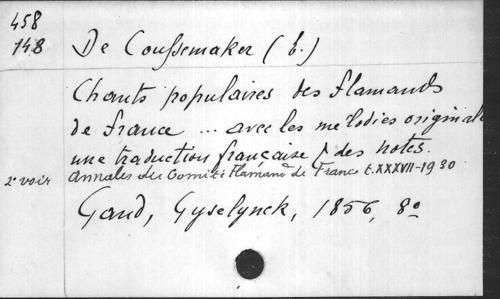 458
148
De Coussemaker (E.)
Chants populaires des Flamands
de France ... avec les mélodies originale
une traduction française & des notes.
2e voir Annales du Comité Flamand de France t.XXXVII-1930
Gand, Gyselynck, 1856, 8o